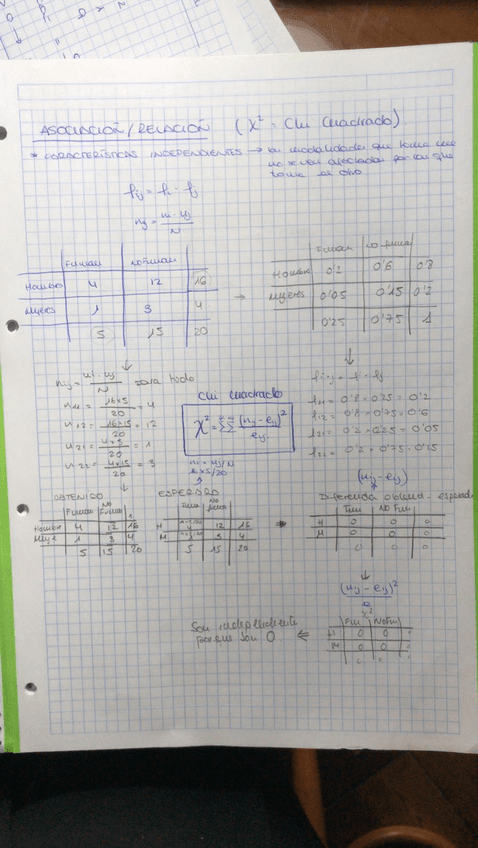 ASOCIACIÓN/RELACIÓN (X² = Chi Cuadrado)
* CARACTERÍSTICAS INDEPENDIENTES → las modalidades que toma una
no se ven afectadas por las que
toma la otra
fij = fi · fj
nij = ni · nj / N
Fuman No Fuman
Hombre 4 12 16
Mujeres 1 3 4
5 15 20
→
Fuman No Fuma
Hombre 0'2 0'6 0'8
Mujeres 0'05 0'15 0'2
0'25 0'75 1
nij = ni · nj / N para todo
n11 = 16x5 / 20 = 4
n12 = 16x15 / 20 = 12
n21 = 4x5 / 20 = 1
n22 = 4x15 / 20 = 3
Chi Cuadrado
X² = ΣΣ (nij - eij)² / eij
16x5/20
fij = fi · fj
f11 = 0'8 · 0'25 = 0'2
f12 = 0'8 · 0'75 = 0'6
f21 = 0'2 · 0'25 = 0'05
f22 = 0'2 · 0'75 = 0'15
OBTENIDO
Fuman No Fuman
Hombre 4 12 16
Mujer 1 3 4
5 15 20
ESPERADO
Fuma No fuma
H 12 16
M 3 4
5 15 20
(nij - eij)
Diferencia obtenid - esperado
Fum No Fum
H 0 0 0
M 0 0 0
0 0
(nij - eij)²
Fum No Fu
H 0 0
M 0 0
⇐
Son independiente
porque son 0